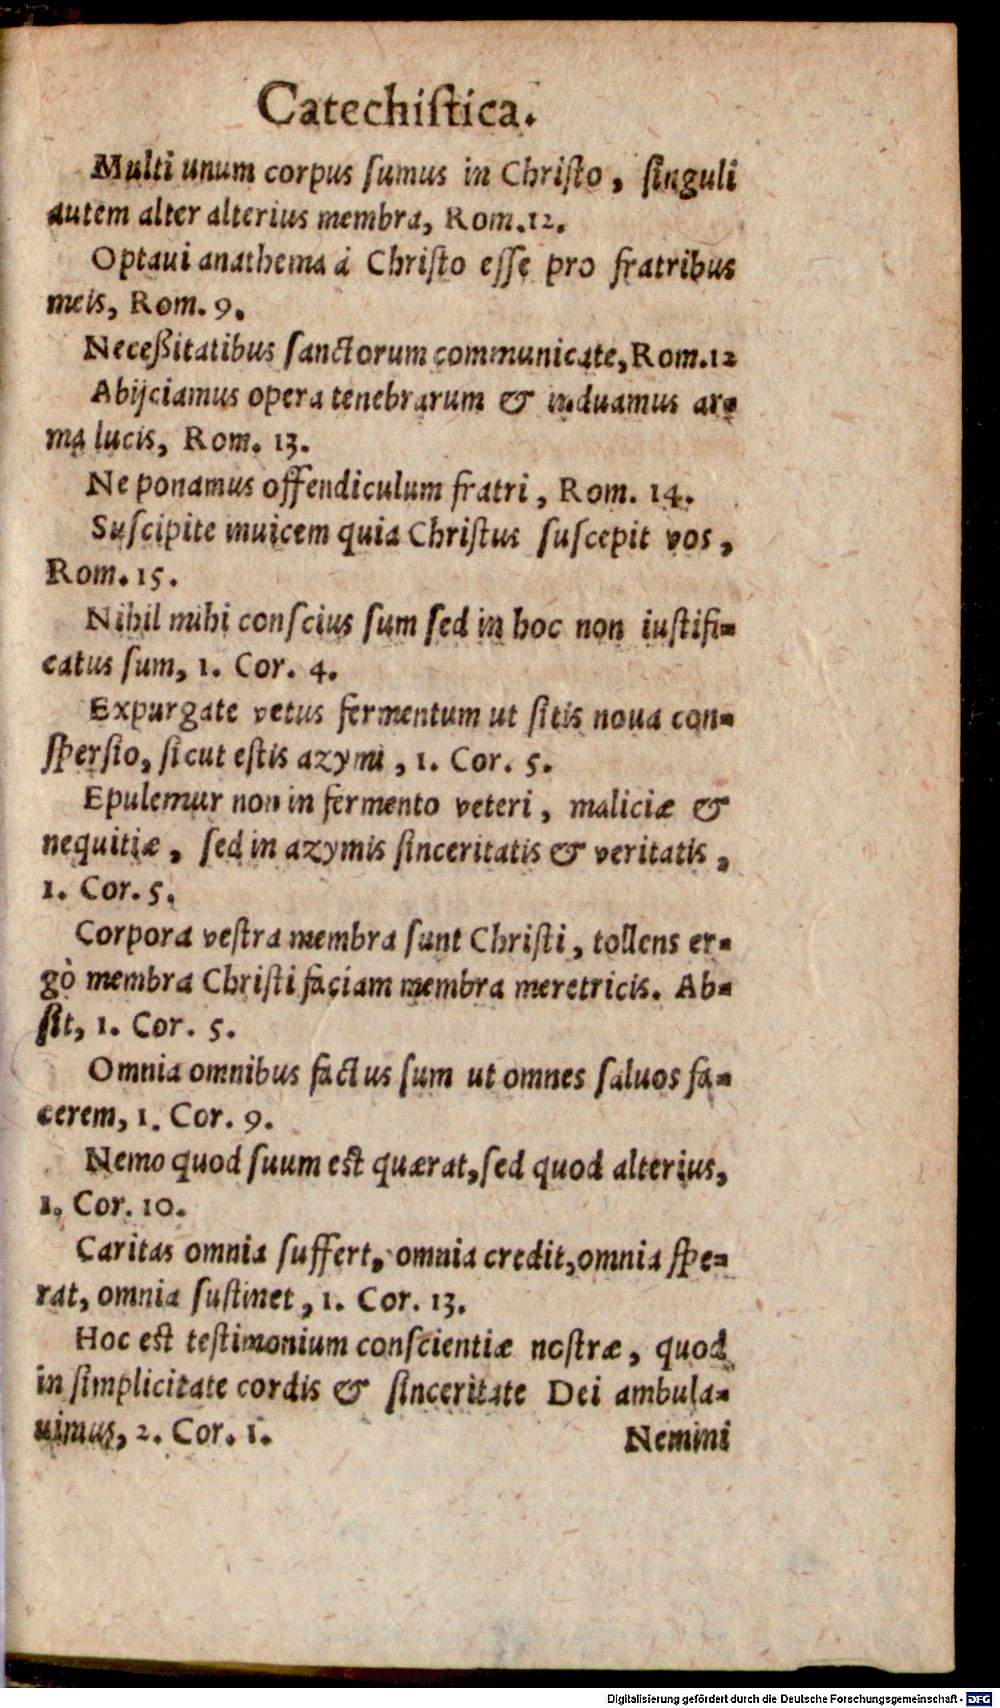 Catechiſtica.
Multi unum corpus ſumus in Chriſto, ſinguli
autem alter alterius membra, Rom.12.
Optaui anathema á Chriſto eſſe pro fratribus
meis, Rom. 9.
Neceßitatibus ſanctorum communicate, Rom.12
Abijciamus opera tenebrarum & induamus ar-
ma lucis, Rom. 13.
Ne ponamus offendiculum fratri, Rom. 14.
Suſcipite inuicem quia Chriſtus ſuſcepit vos,
Rom. 15.
Nihil mihi conſcius ſum ſed in hoc non iuſtifi-
catus ſum, 1. Cor. 4.
Expurgate vetus fermentum ut ſitis noua con-
ſperſio, ſicut eſtis azymi, 1. Cor. 5.
Epulemur non in fermento veteri, maliciæ &
nequitiæ, ſed in azymis ſinceritatis & veritatis,
1. Cor. 5.
Corpora veſtra membra ſunt Chriſti, tollens er-
gò membra Chriſti faciam membra meretricis. Ab-
ſit, 1. Cor. 5.
Omnia omnibus factus ſum ut omnes ſaluos fa-
cerem, 1. Cor. 9.
Nemo quod ſuum eſt quærat, ſed quod alterius,
1. Cor. 10.
Caritas omnia ſuffert, omnia credit, omnia ſpe-
rat, omnia ſuſtinet, 1. Cor. 13.
Hoc eſt teſtimonium conſcientiæ noſtræ, quod
in ſimplicitate cordis & ſinceritate Dei ambula-
uimus, 2. Cor. 1.
Nemini
Digitalisierung gefördert durch die Deutsche Forschungsgemeinschaft - DFG